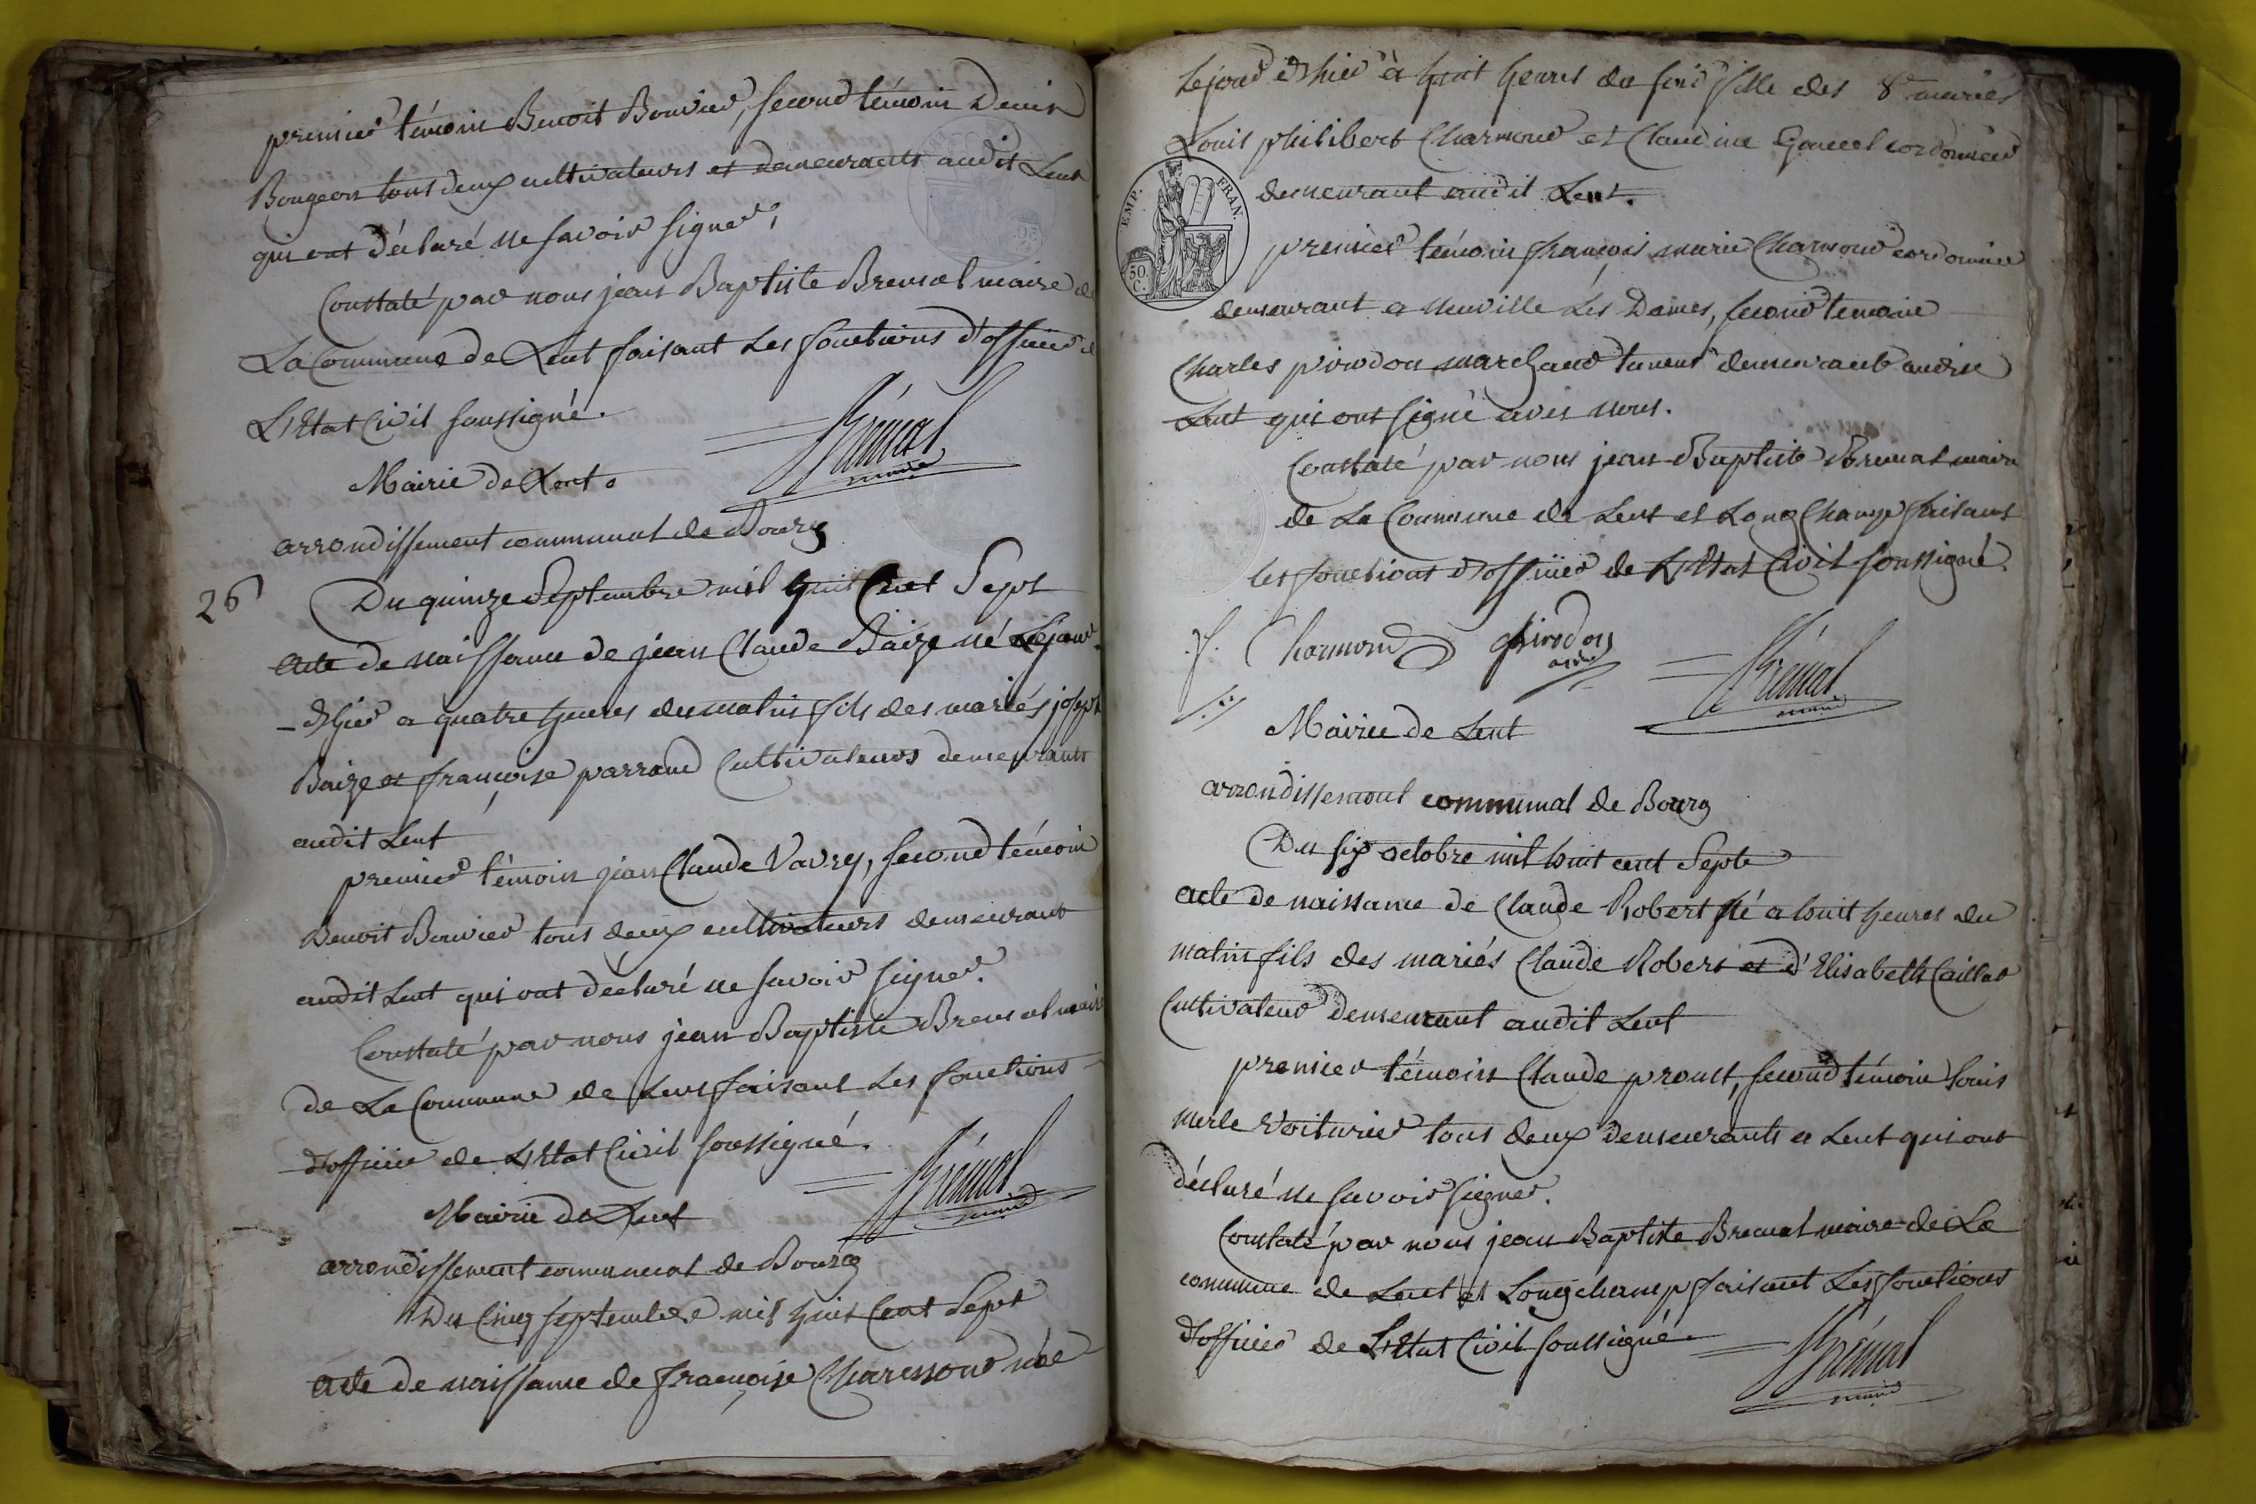 premier témoin Benoit Bouvier, second témoin Denis
Bougeon tous deux cultivateurs et demeurants audit Lent
qui ont déclaré ne savoir signer,
Constaté par nous jean Baptiste Breval maire de
La Commune de Lent faisant Les fonctions d'officier de
L'Etat Civil soussigné.
Brénal
maire
Mairie de Lent.
arrondissement communal de Bourg
26
Du quinze Septembre mil huit Cent Sept
acte de naissance de jean Claude Baize né Lejour
d'hier a quatre heures du matin fils des mariés joseph
Baize et françoise parrand Cultivateurs demeurants
audit Lent
premier témoin jean Claude Vavry, second témoin
Benoit Bouvier tous deux cultivateurs demeurant
audit Lent qui ont déclaré ne savoir signer.
Constaté par nous jean Baptiste Brenal maire
de La Commune de Lent faisant Les fonctions
d'officier de L'Etat Civil soussigné.
Brénal
maire
Mairie de Lent
arrondissement communal de Bourg
Du Cinq septembre mil huit Cent Sept
acte de naissance de françoise Charmond née
Lejour d'hier à huit heures du soir fille des mariés
Louis philibert Charmond et Claudine cordonnier
demeurant audit Lent.
EMP. FRAN.
50. C.
premier témoin françois marie Charmond cordonnier
demeurant a neuville Les Dames, second temoin
Charles pirodon marchand taneur demeurant audit
Lent qui ont signé avec nous.
Constaté par nous jean Baptiste Brenal maire
de La Commune de Lent et LongChamp faisant
les fonctions d'officier de L'Etat Civil soussigné.
f. Charmond pirodon
Brénal
maire
Mairie de Lent
arrondissement communal de Bourg
Du six octobre mil huit cent Sept
acte de naissance de Claude Robert né a huit heures du
matin fils des mariés Claude Robert et d'Elisabeth Caillat
Cultivateur demeurant audit Lent
premier témoin Claude proust, second témoin Louis
merle Voiturier tous deux demeurants a Lent qui ont
déclaré ne savoir signer.
Constaté par nous jean Baptiste Brenal maire de La
commune de Lent et Longchamp faisant Les fonctions
d'officier de L'Etat Civil soussigné.
Brénal
maire